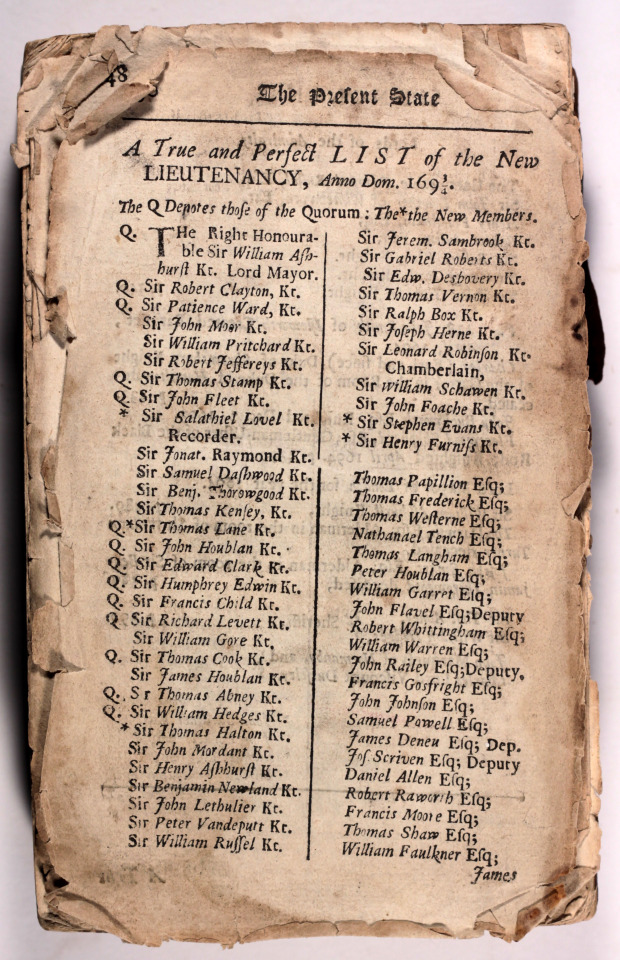 48
The Preſent State
A True and Perfect LIST of the New
LIEUTENANCY, Anno Dom. 169¾.
The Q Denotes thoſe of the Quorum; The * the New Members.
Q. THe Right Honoura-
ble Sir William Aſh-
hurſt Kt. Lord Mayor.
Q. Sir Robert Clayton, Kt.
Q. Sir Patience Ward, Kt.
Sir John Moor Kt.
Sir William Pritchard Kt.
Sir Robert Jeffereys Kt.
Q. Sir Thomas Stamp Kt.
Q. Sir John Fleet Kt.
* Sir Salathiel Lovel Kt.
Recorder.
Sir Jonat. Raymond Kt.
Sir Samuel Daſhwood Kt.
Sir Benj. Thorowgood Kt.
Sir Thomas Kenſey, Kt.
Q.*Sir Thomas Lane Kt.
Q. Sir John Houblan Kt.
Q. Sir Edward Clark Kt.
Q. Sir Humphrey Edwin Kt.
Q. Sir Francis Child Kt.
Q. Sir Richard Levett Kt.
Sir William Gore Kt.
Q. Sir Thomas Cook Kt.
Sir James Houblan Kt.
Q. S r Thomas Abney Kt.
Q. Sir William Hedges Kt.
* Sir Thomas Halton Kt.
Sir John Mordant Kt.
Sir Henry Aſhhurſt Kt.
Sir Benjamin Newland Kt.
Sir John Lethulier Kt.
Sir Peter Vandeputt Kt.
Sir William Ruſſel Kt.
Sir Jerem. Sambrook Kt.
Sir Gabriel Roberts Kt.
Sir Edw. Desbovery Kt.
Sir Thomas Vernon Kt.
Sir Ralph Box Kt.
Sir Joſeph Herne Kt.
Sir Leonard Robinſon Kt.
Chamberlain,
Sir William Schawen Kt.
Sir John Foache Kt.
* Sir Stephen Evans Kt.
* Sir Henry Furniſs Kt.
Thomas Papillion Eſq;
Thomas Frederick Eſq;
Thomas Weſterne Eſq;
Nathanael Tench Eſq;
Thomas Langham Eſq;
Peter Houblan Eſq;
William Garret Eſq;
John Flavel Eſq;Deputy
Robert Whittingham Eſq;
William Warren Eſq;
John Railey Eſq;Deputy,
Francis Gosfright Eſq;
John Johnſon Eſq;
Samuel Powell Eſq;
James Deneu Eſq; Dep.
Joſ Scriven Eſq; Deputy
Daniel Allen Eſq;
Robert Raworth Eſq;
Francis Moore Eſq;
Thomas Shaw Eſq;
William Faulkner Eſq;
James